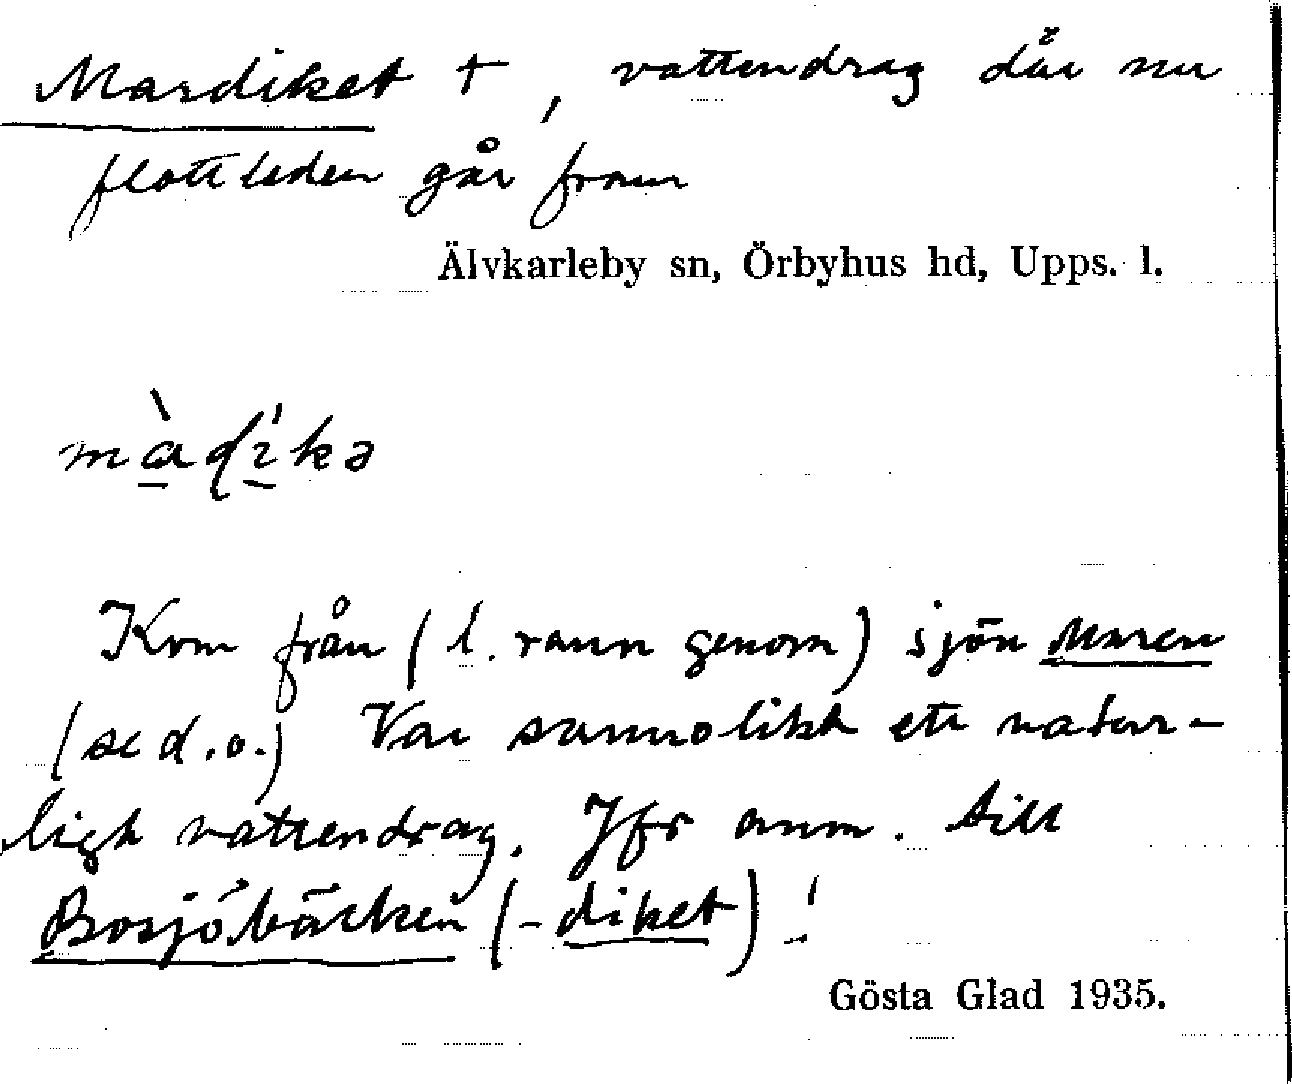 Mardiket +, vattendrag där nu
flottleden går fram
Älvkarleby sn, Örbyhus hd, Upps. l.
màdíkə
Kom från (l. rann genom) sjön Maren
(se d. o.) Var sannolikt ett natur-
ligt vattendrag. Jfr anm. till
Bosjöbäcken (-diket)!
Gösta Glad 1935.